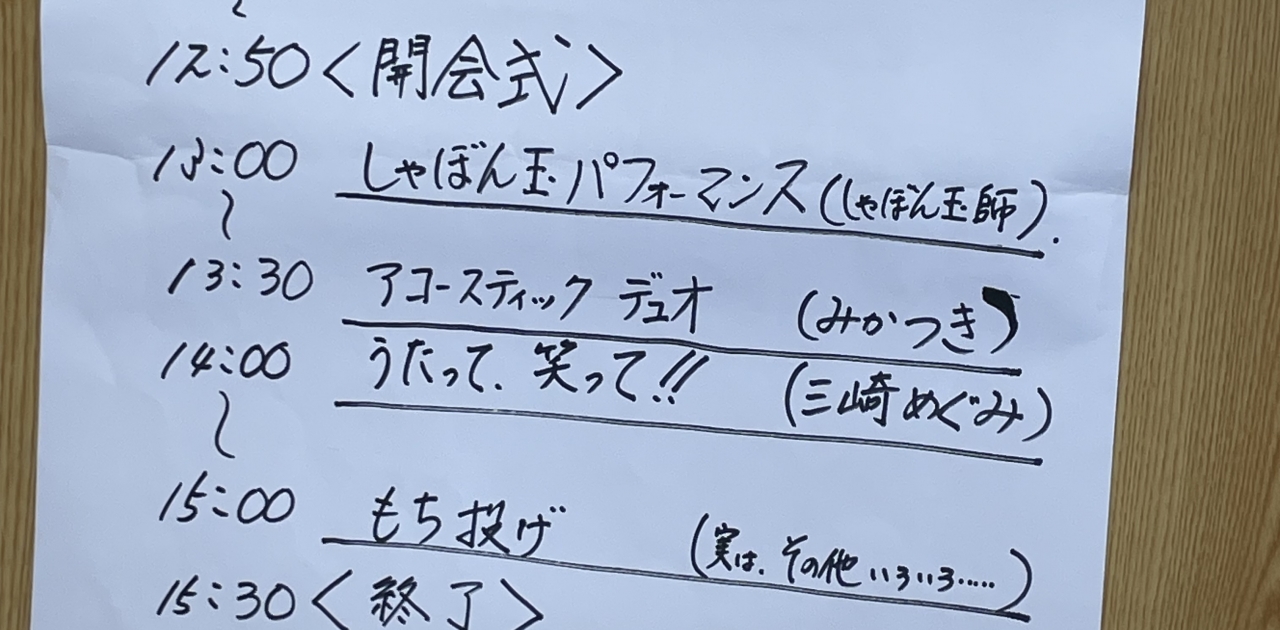 〜
12:50 <開会式>
13:00 しゃぼん玉パフォーマンス (しゃぼん玉師).
〜
13:30 アコースティック デュオ (みかつき)
14:00 うたって、笑って!! (三崎めぐみ)
〜
15:00 もち投げ (実は、その他いろいろ……)
15:30 <終了>